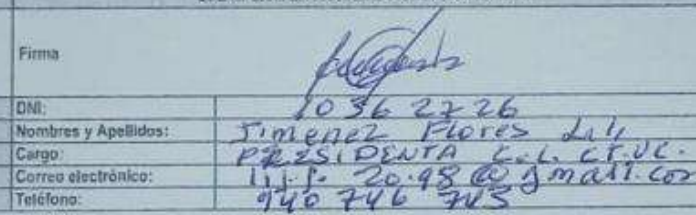 Firma
DNI: 10362726
Nombres y Apellidos: Jimenez Flores Lili
Cargo: PRESIDENTA C.L. CT.VC.
Correo electrónico: 20.98@gmail.com
Teléfono: 940 746 745